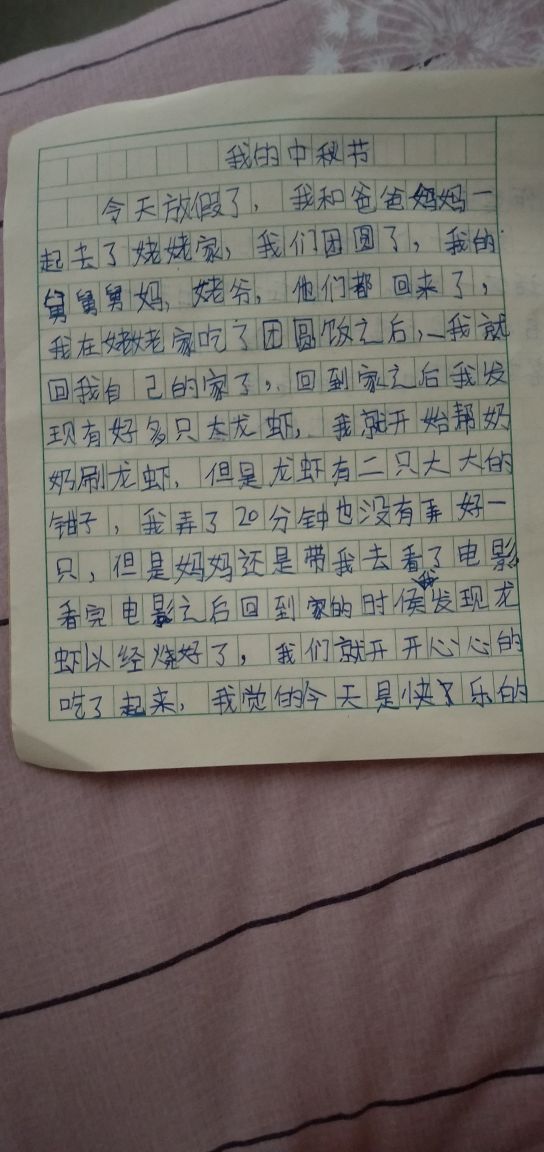 我的中秋节
今天放假了，我和爸爸妈妈一
起去了姥姥家，我们团圆了，我的
舅舅舅妈，姥爷，他们都回来了，
我在姥姥家吃了团圆饭之后，我就
回我自己的家了，回到家之后我发
现有好多只大龙虾，我就开始帮奶
奶刷龙虾，但是龙虾有二只大大的
钳子，我弄了20分钟也没有弄好一
只，但是妈妈还是带我去看了电影
看完电影之后回到家的时候我发现龙
虾以经烧好了，我们就开开心心的
吃了起来，我觉的今天是快乐的